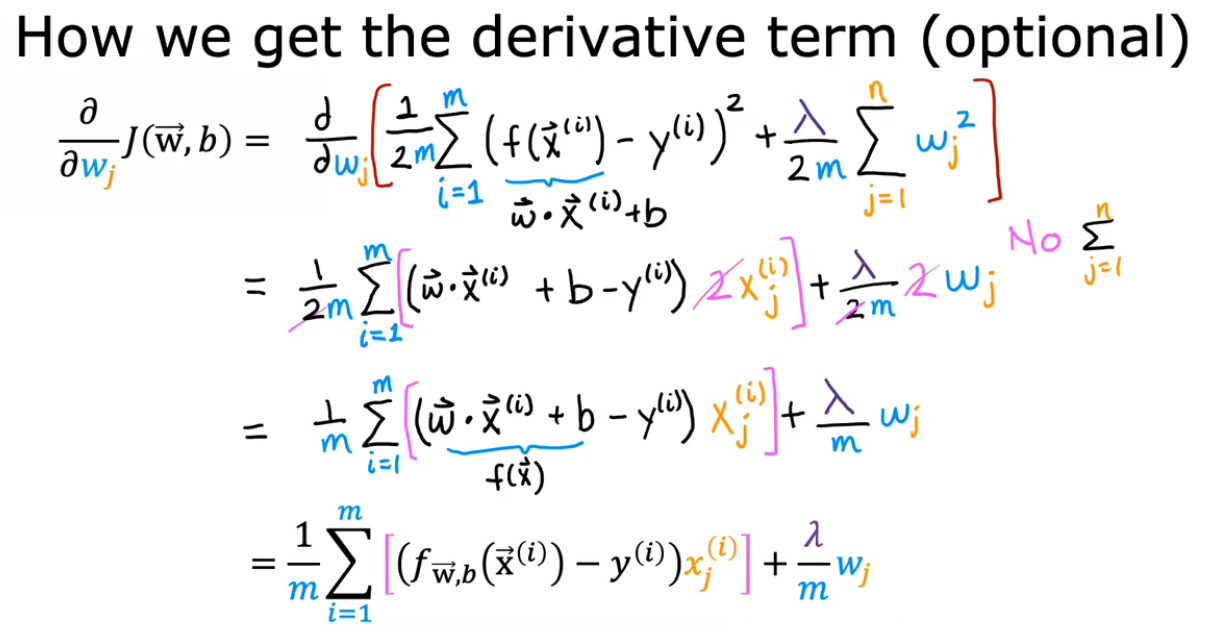 How we get the derivative term (optional)
∂/∂w_j J(w⃗,b) = d/dw_j [ 1/2m Σ_{i=1}^{m} (f(x⃗^(i)) - y^(i))^2 + λ/2m Σ_{j=1}^{n} w_j^2 ]
w⃗·x⃗^(i)+b
No Σ_{j=1}^{n}
= 1/2m Σ_{i=1}^{m} [(w⃗·x⃗^(i) + b - y^(i)) 2 x_j^(i)] + λ/2m 2 w_j
= 1/m Σ_{i=1}^{m} [(w⃗·x⃗^(i) + b - y^(i)) x_j^(i)] + λ/m w_j
f(x⃗)
= 1/m Σ_{i=1}^{m} [(f_{w⃗,b}(x⃗^(i)) - y^(i)) x_j^(i)] + λ/m w_j